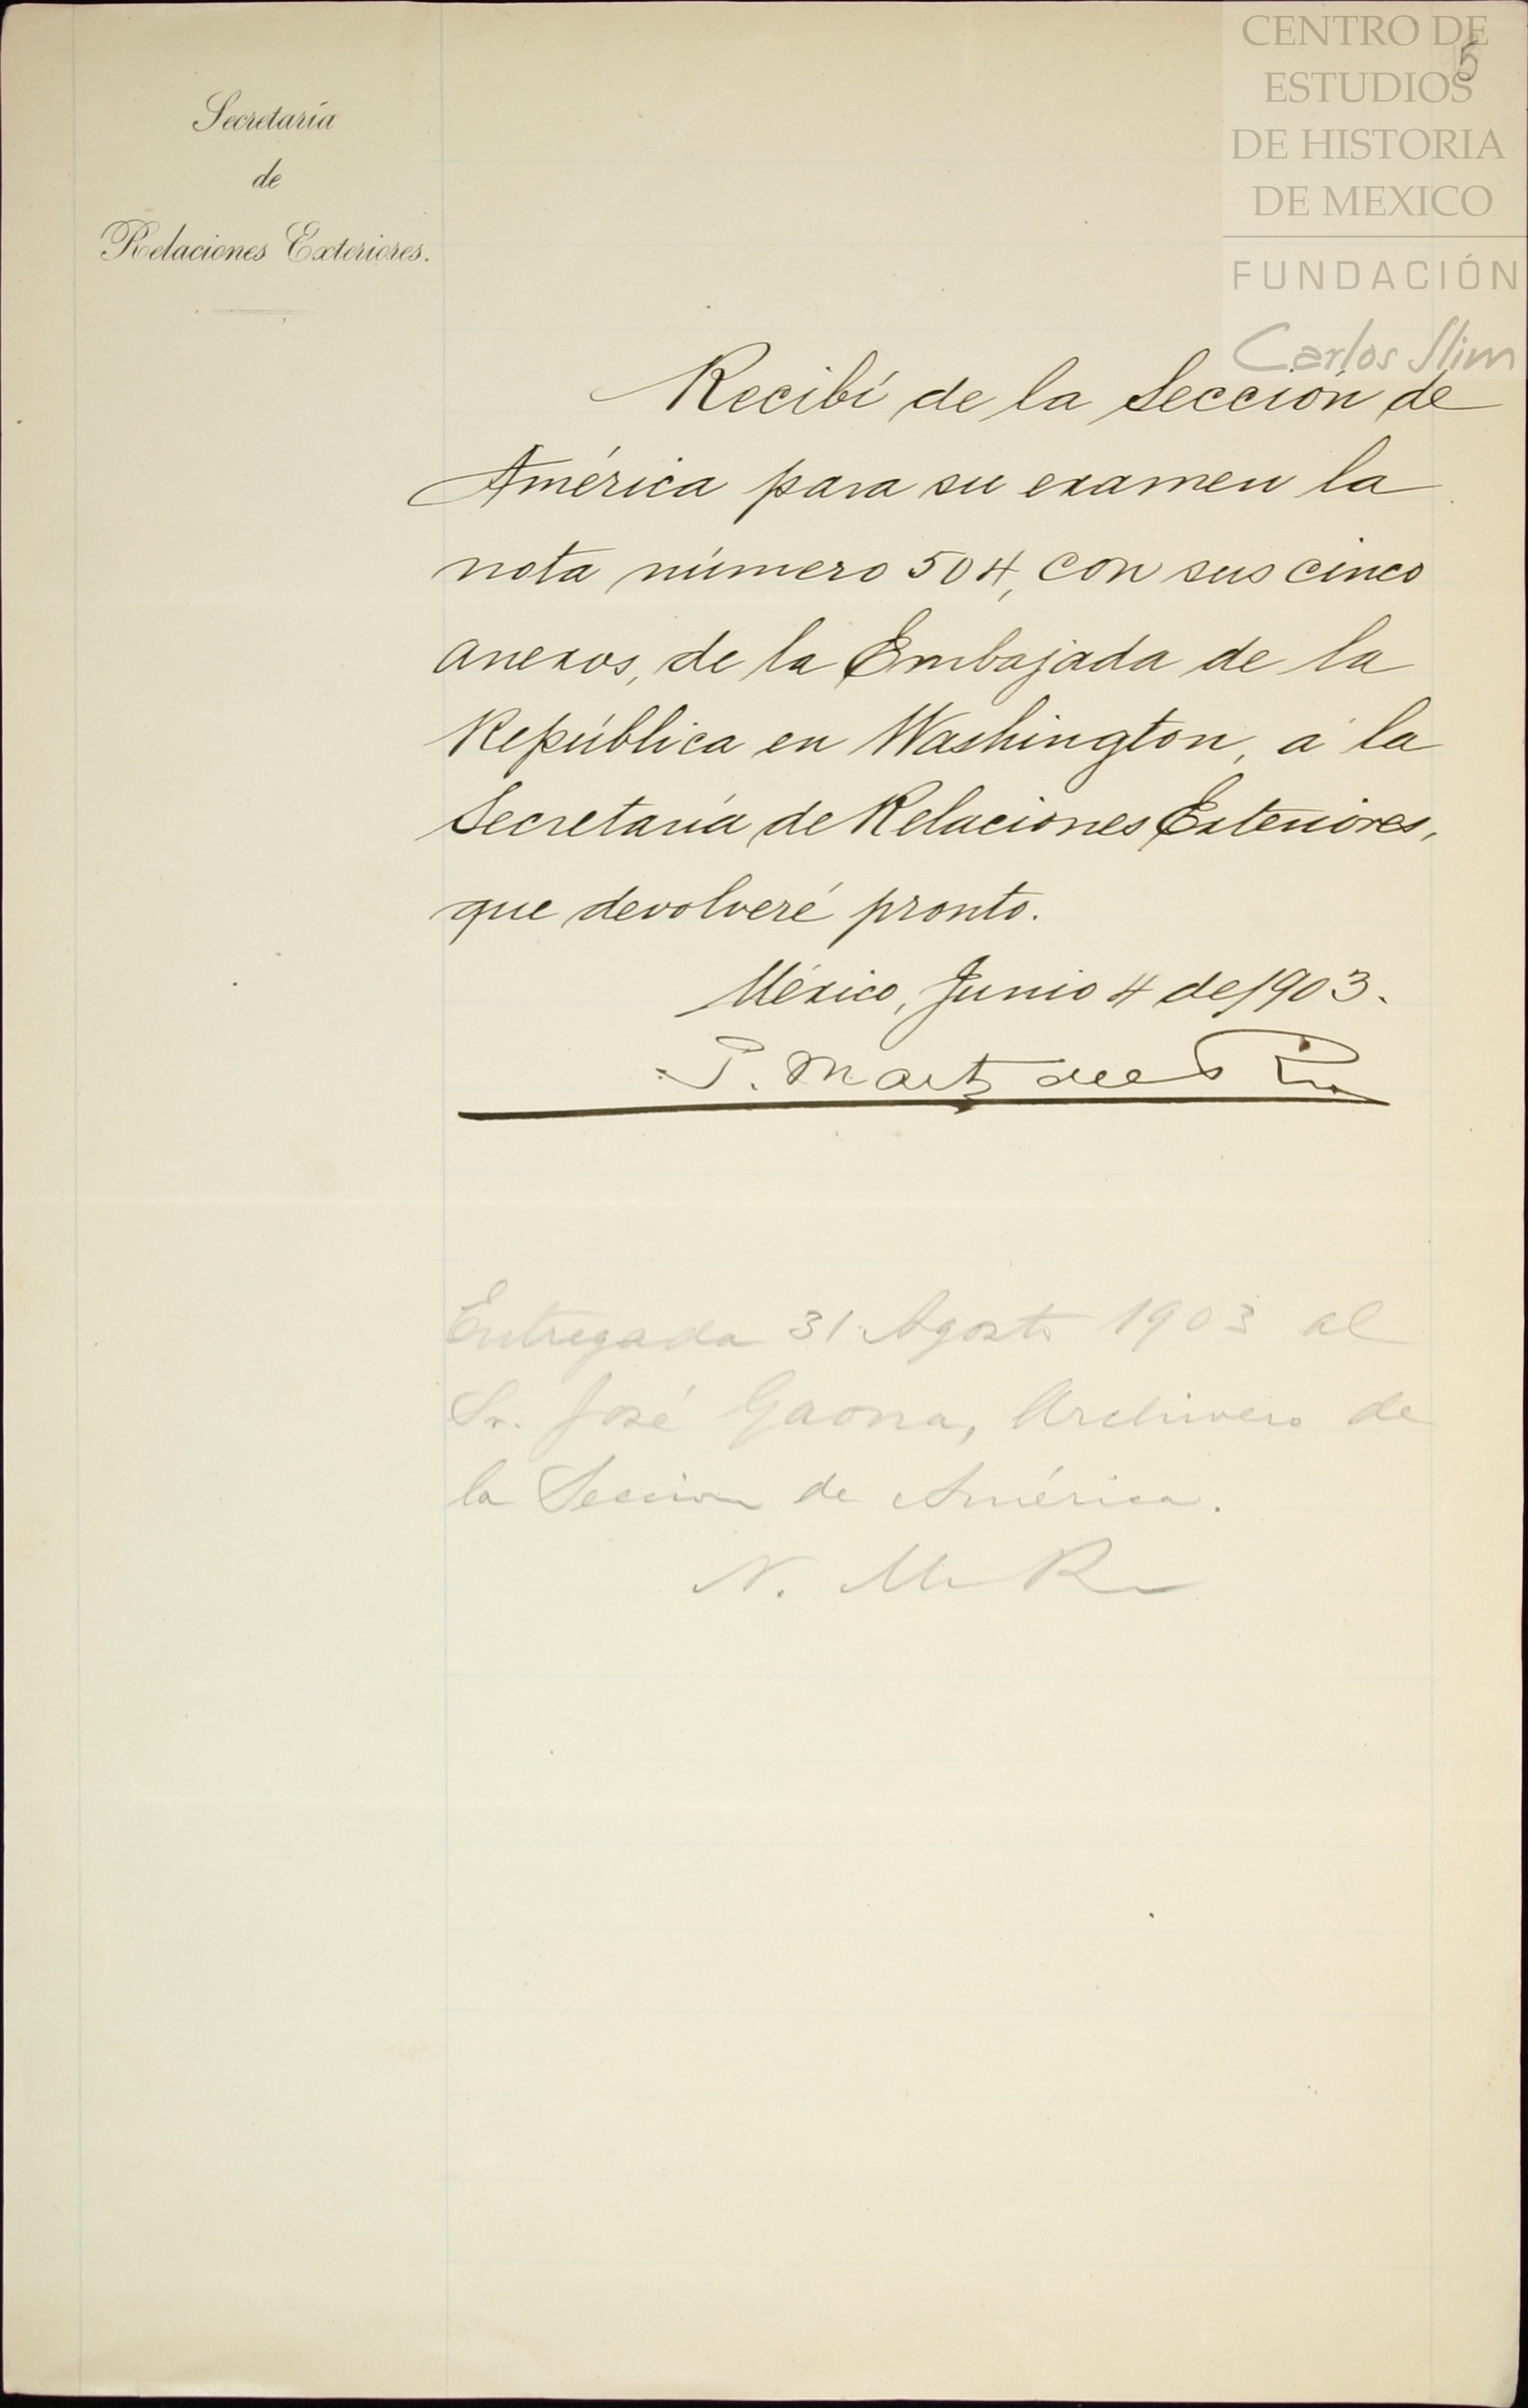 CENTRO DE
ESTUDIOS
DE HISTORIA
DE MEXICO
FUNDACIÓN
Carlos Slim
5
Secretaría
de
Relaciones Exteriores.
Recibí de la Sección de
América para su examen la
nota número 504, con sus cinco
anexos, de la Embajada de la
República en Washington, á la
Secretaría de Relaciones Exteriores,
que devolveré pronto.
México, Junio 4 de 1903.
P. Martz del Rio
Entregada 31 Agosto 1903 al
Sr. José Gaona, Archivero de
la Seccion de América.
N.